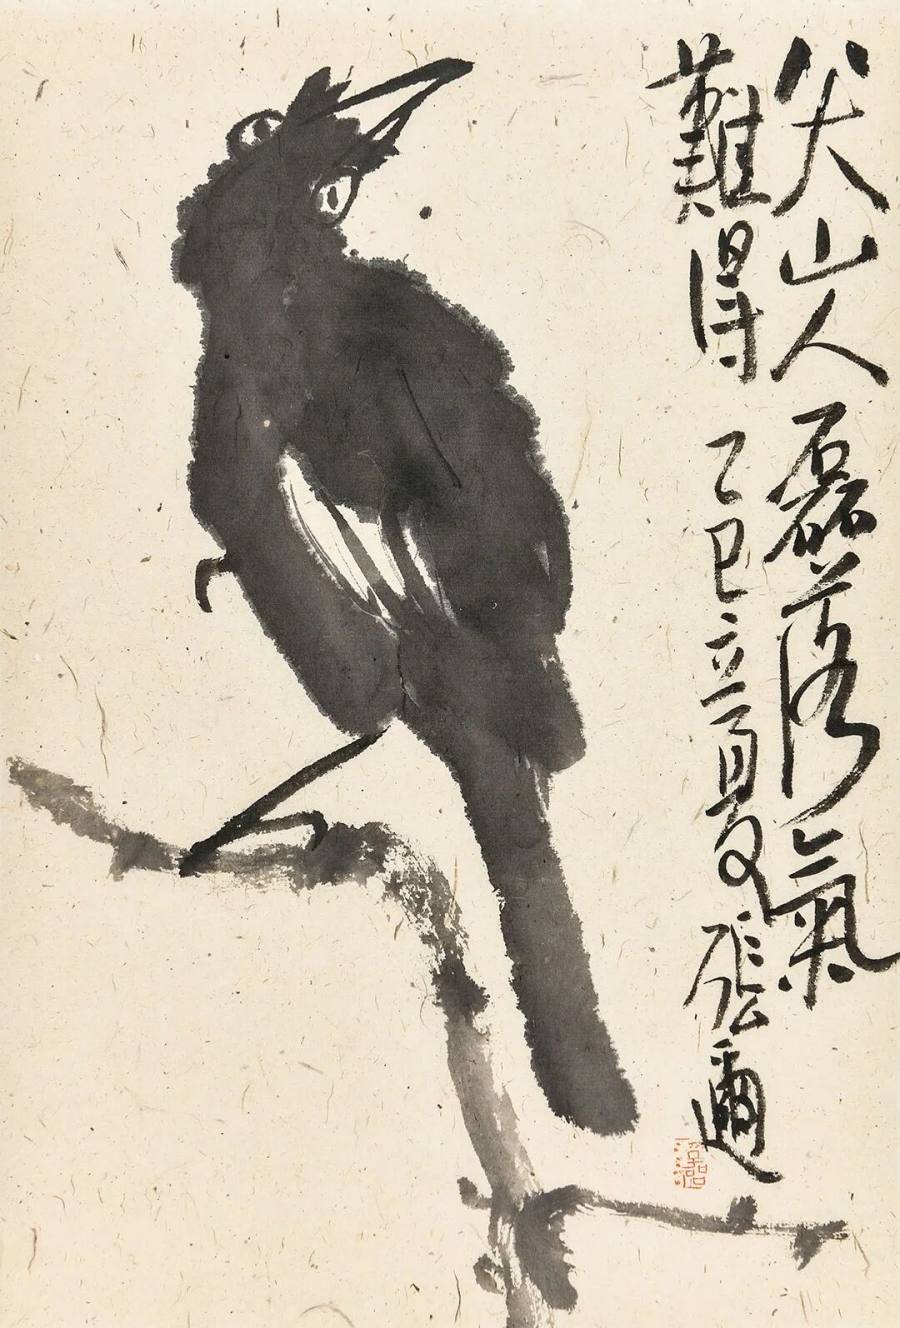 八大山人磊落氣
難得
乙巳立夏張邇